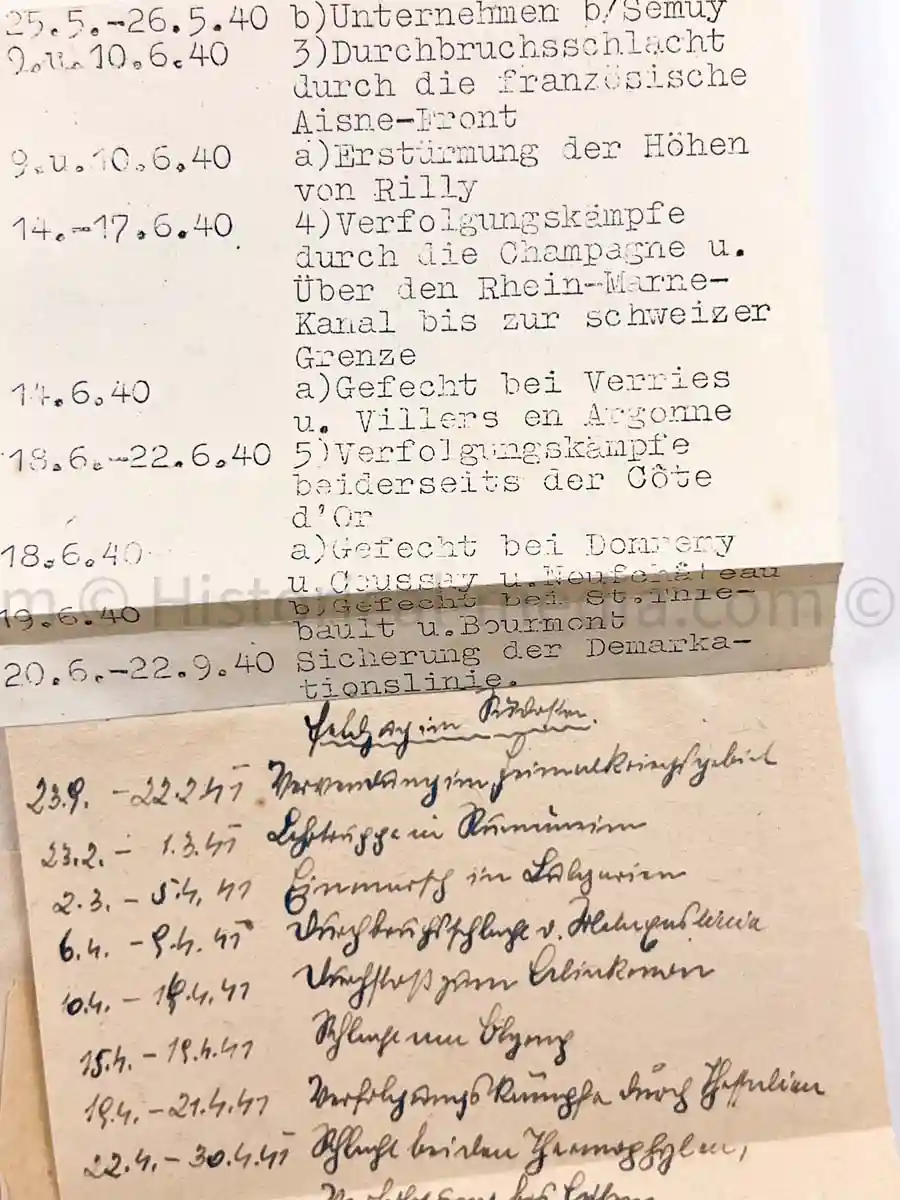 25.5.-26.5.40 b)Unternehmen b/Semuy
9.u.10.6.40 3)Durchbruchsschlacht
durch die französische
Aisne-Front
9.u.10.6.40 a)Erstürmung der Höhen
von Rilly
14.-17.6.40 4)Verfolgungskämpfe
durch die Champagne u.
Über den Rhein-Marne-
Kanal bis zur schweizer
Grenze
14.6.40 a)Gefecht bei Verries
u. Villers en Argonne
18.6.-22.6.40 5)Verfolgungskämpfe
beiderseits der Côte
d'Or
18.6.40 a)Gefecht bei Domremy
u.Coussay u.Neufchâteau
19.6.40 b)Gefecht bei St.Thie-
bault u.Bourmont
20.6.-22.9.40 Sicherung der Demarka-
tionslinie.
Feldzug im Südosten.
23.9. - 22.2.41 Verwendung im Heimatkriegsgebiet
23.2. - 1.3.41 Lehrtruppe in Rumänien
2.3. - 5.4.41 Einmarsch in Bulgarien
6.4. - 9.4.41 Durchbruchsschlacht d. Metaxaslinie
10.4. - 14.4.41 Durchstoß zum
15.4. - 19.4.41 Schlacht am Olymp
19.4. - 21.4.41 Verfolgungskämpfe durch Thessalien
22.4. - 30.4.41 Schlacht bei den Thermophylen,